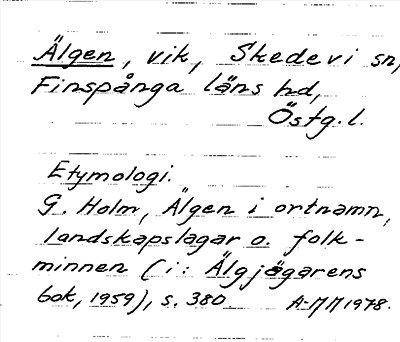 Älgen, vik, Skedevi sn,
Finspånga läns hd,
Östg. l.
Etymologi.
G. Holm, Älgen i ortnamn,
landskapslagar o. folk-
minnen (i: Älgjägarens
bok, 1959), s. 380
A-MM 1978.